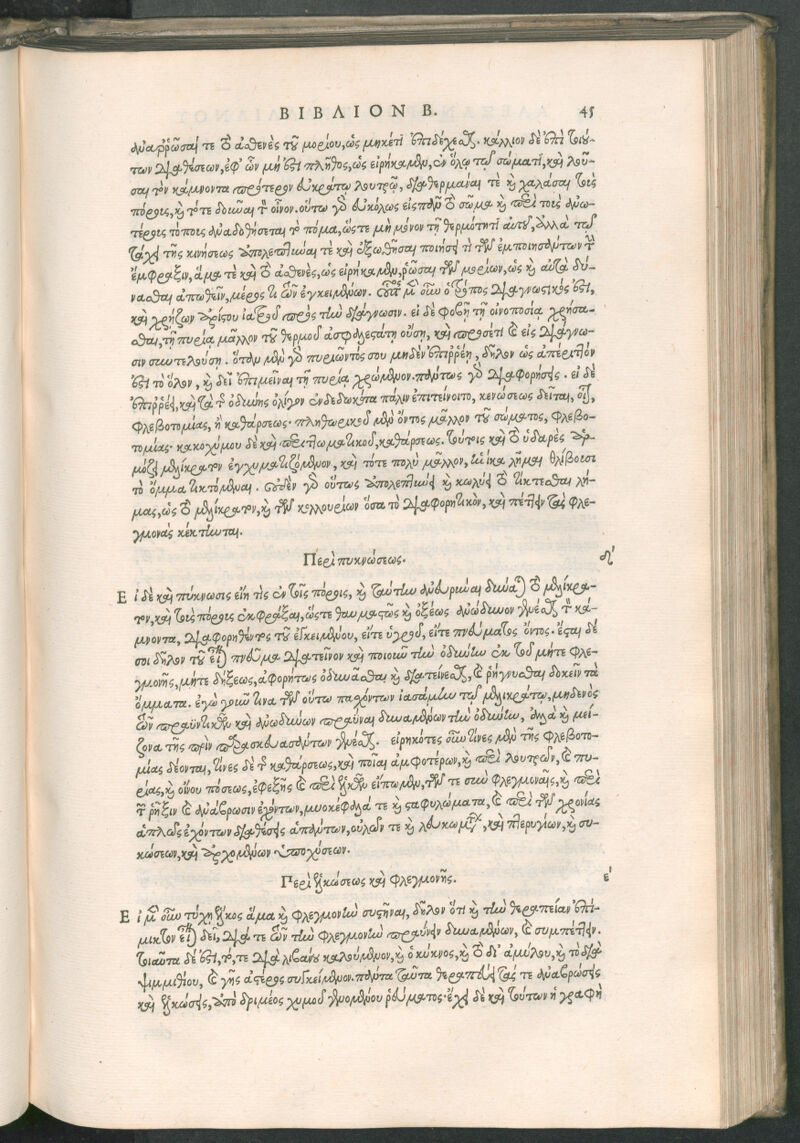 ΒΙΒΛΙΟΝ Β. 45
ἀναῤῥῶσαί τε τὸ ἀσθενὲς τοῦ μορίου, ὡς μηκέτι ἐπιδέχεσθαι. κάλλιον δὲ ἐπὶ τού-
των διαθέσεων, ἐφ' ὧν μή ἐστι πλῆθος, ὡς εἰρήκαμεν, ἐν ὅλῳ τῷ σώματι, καὶ λού-
σαι τὸν κάμνοντα πρότερον εὐκράτῳ λουτρῷ, διαθερμᾶναι τὲ καὶ χαλάσαι τοὺς
πόρους, καὶ τότε δοῦναι τὸν οἶνον. οὕτω γὰρ εὐκόλως εἰς πᾶν τὸ σῶμα καὶ περὶ τοὺς ἀνω-
τέροις τόποις ἀναδοθήσεται τὸ πόμα, ὥστε μὴ μόνον τῇ θερμότητι αὐτοῦ, ἀλλὰ τῷ
τάχει τῆς κινήσεως ἀπολεπτῦναι τὲ καὶ ἐξωθῆσαι ποιήσει τι τῶν ἐμποιησάντων τὴν
ἔμφραξιν, ἅμα τὲ καὶ τὸ ἀσθενὲς, ὡς εἰρήκαμεν, ῥῶσαι τῶν μορίων, ὡς καὶ αὐτὰ δύ-
νασθαι ἀπωθεῖν, μέρος τι τῶν ἐγκειμένων. οὗτος μὲν οὖν ὁ τρόπος διαγνωστικός ἐστι,
καὶ χρῄζων ἀρίστου ἰατροῦ πρὸς τὴν διάγνωσιν. εἰ δὲ φοβῇ τῇ οἰνοποσίᾳ χρήσα-
σθαι, τῇ πυρίᾳ μᾶλλον τοῦ θερμοῦ ἀσφαλεστάτῃ οὔσῃ, καὶ προσέτι καὶ εἰς διάγνω-
σιν συντελούσῃ. ὅταν μὲν γὰρ πυριῶντός σου μηδὲν ἐπιῤῥέῃ, δῆλον ὡς ἀπέριττόν
ἐστι τὸ ὅλον, καὶ δεῖ ἐπιμεῖναι τῇ πυρίᾳ χρώμενον. πάντως γὰρ διαφορήσεις. εἰ δὲ
ἐπιῤῥέει, καὶ τὰ τῆς ὀδύνης ὀλίγον ἐνδεδωκότα πάλιν ἐπιτείνοιτο, κενώσεως δεῖται, ἤτοι
φλεβοτομίας, ἢ καθάρσεως· πληθωρικοῦ μὲν ὄντος μᾶλλον τοῦ σώματος, φλεβο-
τομίας· κακοχύμου δὲ καὶ περιττωματικοῦ, καθάρσεως. τούτοις καὶ τὸ ὑδαρὲς ἁρ-
μόζει μελίκρατον ἐγχυματιζόμενον, καὶ τότε πολὺ μᾶλλον, ἡνίκα λῆμαι θλίβουσι
τὸ ὄμμα τικτόμεναι. οὐδὲν γὰρ οὕτως ἀπολεπτύνει καὶ κωλύει τὸ τίκτεσθαι λή-
μας, ὡς τὸ μελίκρατον, καὶ τῶν κολλουρίων ὅσα τὸ διαφορητικὸν, καὶ πέττειν τὰς φλε-
γμονὰς κέκτηνται.
Περὶ πυκνώσεως. δ'
Εἰ δὲ καὶ πύκνωσις εἴη τὶς ἐν τοῖς πόροις, καὶ ταύτην ἀνευρῦναι δύναται τὸ μελίκρα-
τον, καὶ τοὺς πόρους ἐκφράξαι, ὥστε θαυμαστῶς καὶ ὀξέως ἀνώδυνον γενέσθαι τὸν κά-
μνοντα, διαφορηθέντος τοῦ ἐγκειμένου, εἴτε ὑγροῦ, εἴτε πνεύματος ὄντος. ἔσται δέ
σοι δῆλον τοῦ εἶναι πνεῦμα διατεῖνον καὶ ποιοῦν τὴν ὀδύνην ἐκ τοῦ μήτε φλε-
γμονῆς, μήτε δήξεως, ἀφορήτως ὀδυνᾶσθαι καὶ διατείνεσθαι, καὶ ῥήγνυσθαι δοκεῖν τὰ
ὄμματα. ἐγὼ γοῦν τινα τῶν οὕτω παχόντων ἰασάμην τῷ μελικράτῳ, μηδενὸς
τῶν πραϋντικῶν καὶ ἀνωδύνων πραῦναι δυναμένων τὴν ὀδύνην, ἀλλὰ καὶ μεί-
ζονα τῆς πρὶν παρασκευασάντων γενέσθαι. εἰρηκότες οὖν τίνες μὲν τῆς φλεβοτο-
μίας δέονται, τίνες δὲ τῆς καθάρσεως, καὶ ποῖαι ἀμφοτέρων, καὶ περὶ λουτρῶν, καὶ πυ-
ρίας, καὶ οἴνου πόσεως, ἐφεξῆς καὶ περὶ ἑλκῶν εἴπωμεν, τῶν τε σὺν φλεγμοναῖς, καὶ περὶ
τὴν ῥῆξιν καὶ ἀνάβρωσιν ἐχόντων, μυοκέφαλά τε καὶ σταφυλώματα, καὶ περὶ τῶν χρονίας
ἁπλῶς ἐχόντων διαθέσεις ἁπάντων, οὐλῶν τε καὶ λευκωμάτων, καὶ πτερυγίων, καὶ συ-
κώσεων, καὶ ἀρχομένων ὑποχύσεων.
Περὶ ἑλκώσεως καὶ φλεγμονῆς. ε'
Εἰ μὲν οὖν τύχῃ ἕλκος ἅμα καὶ φλεγμονὴν συστῆναι, δῆλον ὅτι καὶ τὴν θεραπείαν ἐπί-
μικτον εἶναι δεῖ, διά τε τῶν τὴν φλεγμονὴν πραΰνειν δυναμένων, καὶ συμπέττειν.
τοιαῦτα δέ ἐστι, τό, τε διὰ λιβάνου καλούμενον, καὶ ὁ κύκνος, καὶ τὸ δι' ἀμύλου, καὶ τὸ διὰ
ψιμμιθίου, καὶ γῆς ἀστέρος συγκείμενον. πάντα ταῦτα θεραπεύει τάς τε ἀναβρώσεις
καὶ ἑλκώσεις, ἀπὸ δριμέος χυμοῦ γενομένου ῥεύματος· ἔχει δὲ καὶ τούτων ἡ γραφὴ